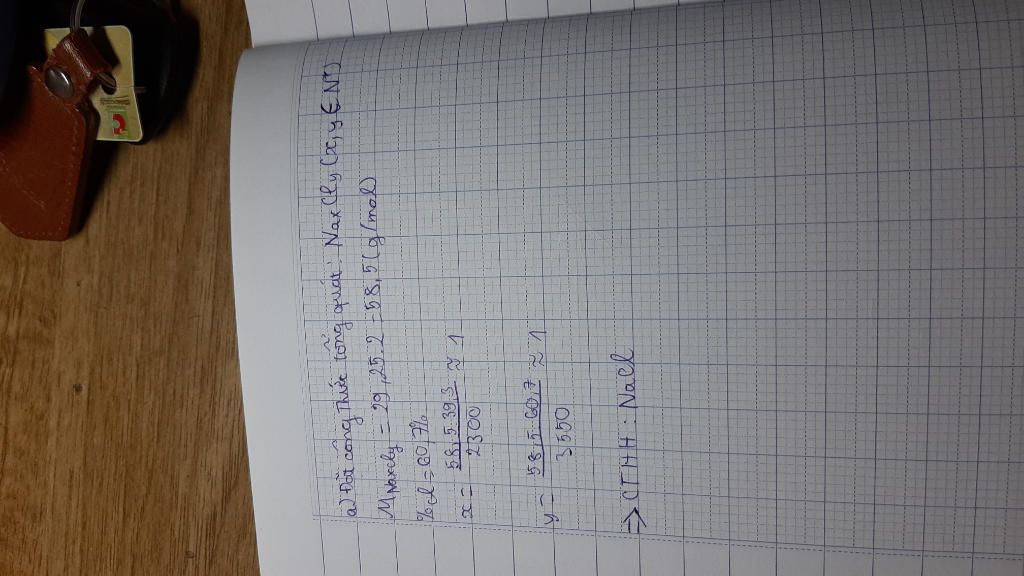 a) Đặt công thức tổng quát: NaxCly (x, y ∈ N*)
MNaxCly = 29,25.2 = 58,5 (g/mol)
%Cl = 60,7%
x = 58,5.39,3 / 2300 ≈ 1
y = 58,5.60,7 / 3550 ≈ 1
=> CTHH : NaCl